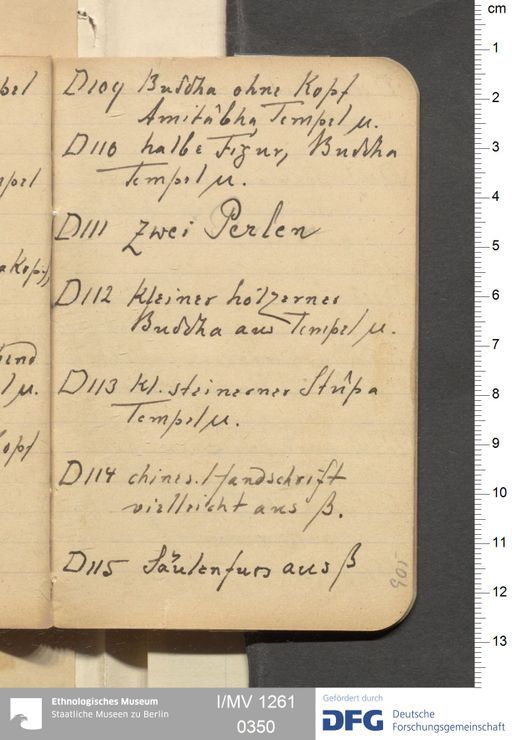 D109 Buddha ohne Kopf
Amitâbha, Tempel µ.
D110 halbe Figur, Buddha
Tempel µ.
D111 zwei Perlen
D112 kleiner hölzerner
Buddha aus Tempel µ.
D113 kl. steinerner Stûpa
Tempel µ.
D114 chines. Handschrift
vielleicht aus β.
D115 Säulenfuss aus β
905
cm
1
2
3
4
5
6
7
8
9
10
11
12
13
Ethnologisches Museum
Staatliche Museen zu Berlin
I/MV 1261
0350
Gefördert durch
DFG Deutsche
Forschungsgemeinschaft